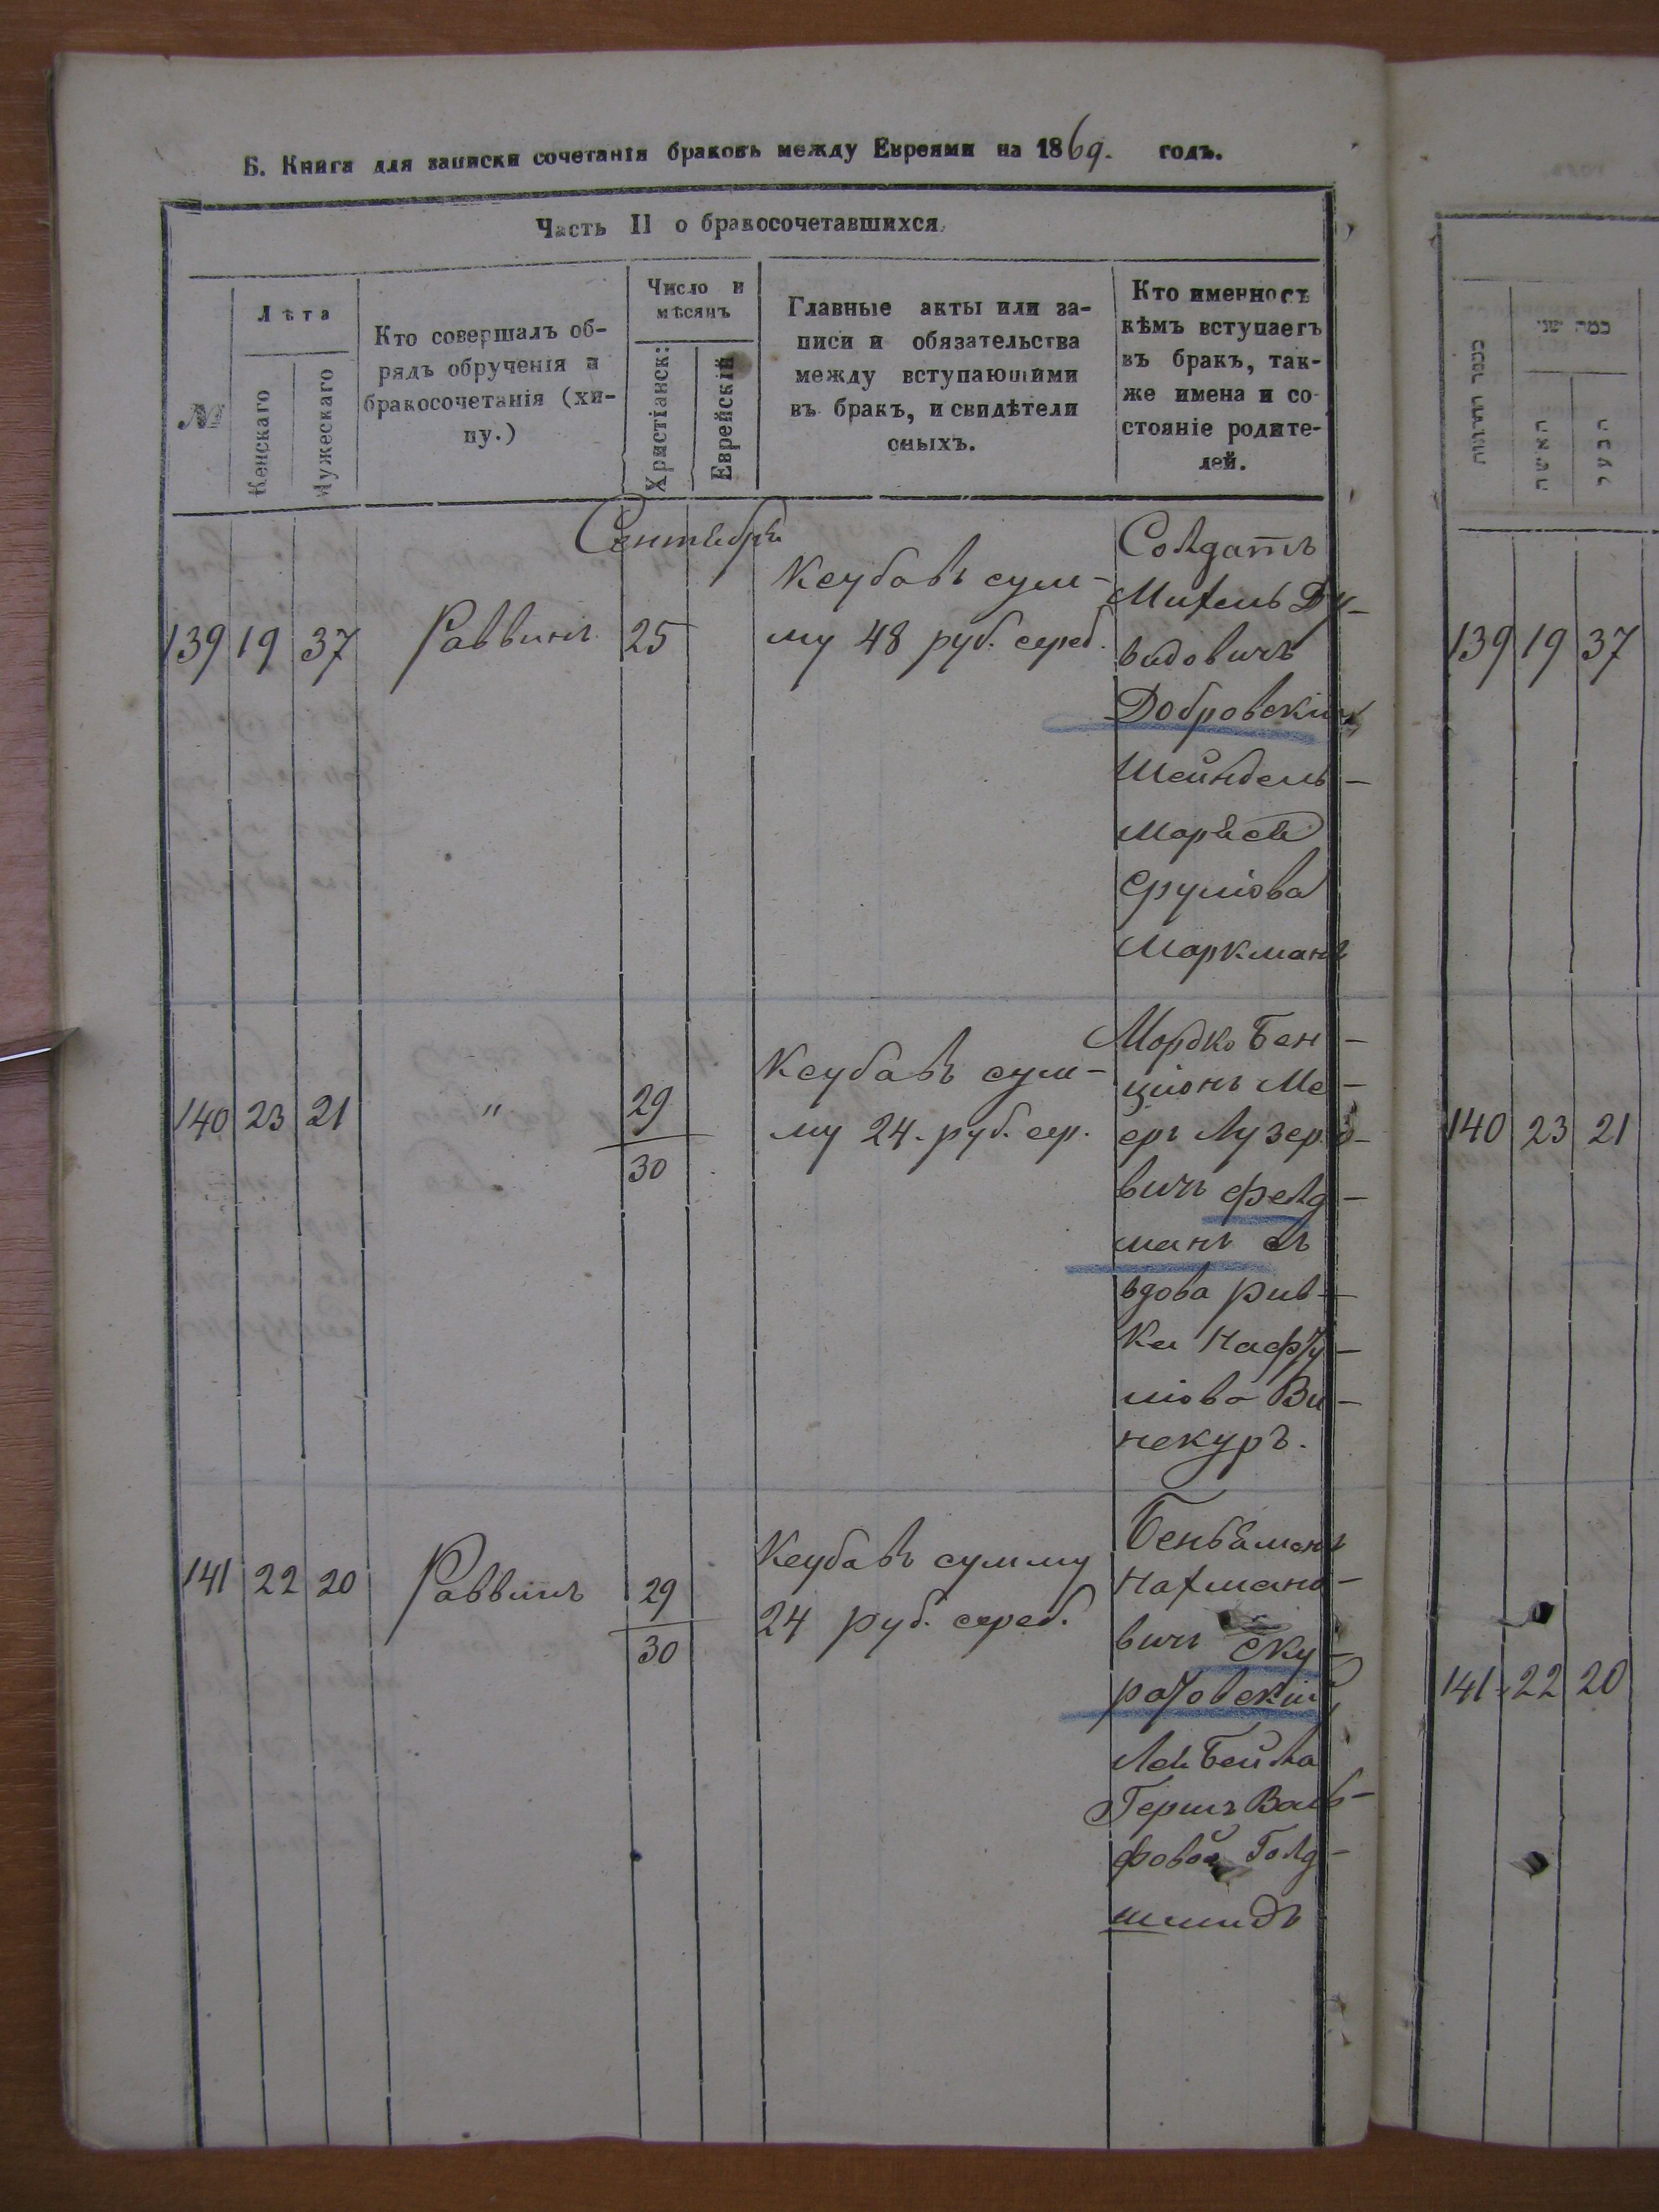 Б. Книга для записки сочетанія браковъ между Евреями на 1869. годъ.
Часть II о бракосочетавшихся.
№
Лѣта
Женскаго
Мужескаго
Кто совершалъ об-
рядъ обрученія и
бракосочетанія (хи-
пу.)
Число и
мѣсяцъ
Христіанск:
Еврейскій
Главные акты или за-
писи и обязательства
между вступающими
въ бракъ, и свидѣтели
оныхъ.
Кто именно съ
кѣмъ вступаетъ
въ бракъ, так-
же имена и со-
стояніе родите-
лей.
Сентября
139 19 37 Раввинъ 25
Кеубавъ сум-
му 48 руб. сереб.
Солдатъ
Михель Ду-
видовичъ
Добровскій
Шейндель-
Марьяся
Срулiова
Маркманъ
140 23 21 " 29
30
Кеубавъ сум-
му 24. руб. сер.
Мордко Бен-
ціонъ Ме-
еръ Лузеро-
вичъ Фелд-
манъ съ
вдова Рив-
ка Нафту-
ліова Ви-
некуръ.
141 22 20 Раввинъ 29
30
Кеубавъ сумму
24 руб. сереб.
Беньяминъ
Нахмано-
вичъ Ску-
ратовскій
Лея Бейла
Гершъ Воль-
фовой Голд-
шмидъ
כמה שני
האשה
הבעל
139 19 37
140 23 21
141 22 20